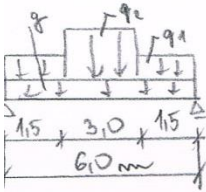 g q2 q1
1,5 3,0 1,5
6,0 m